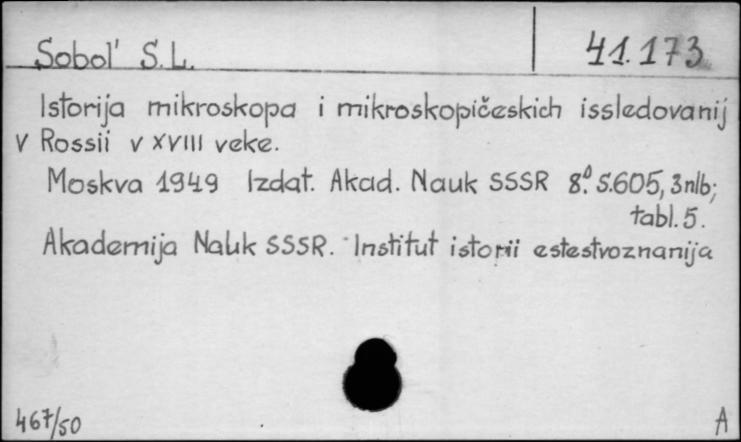 Sobol' S.L. 41.173
Istorija mikroskopa i mikroskopičeskich issledovanij
v Rossii v XVIII veke.
Moskva 1949 Izdat. Akad. Nauk SSSR 8.⁰ S.605, 3nlb;
tabl. 5.
Akademija Nauk SSSR. Institut istorii estestvoznanija
467/50 A